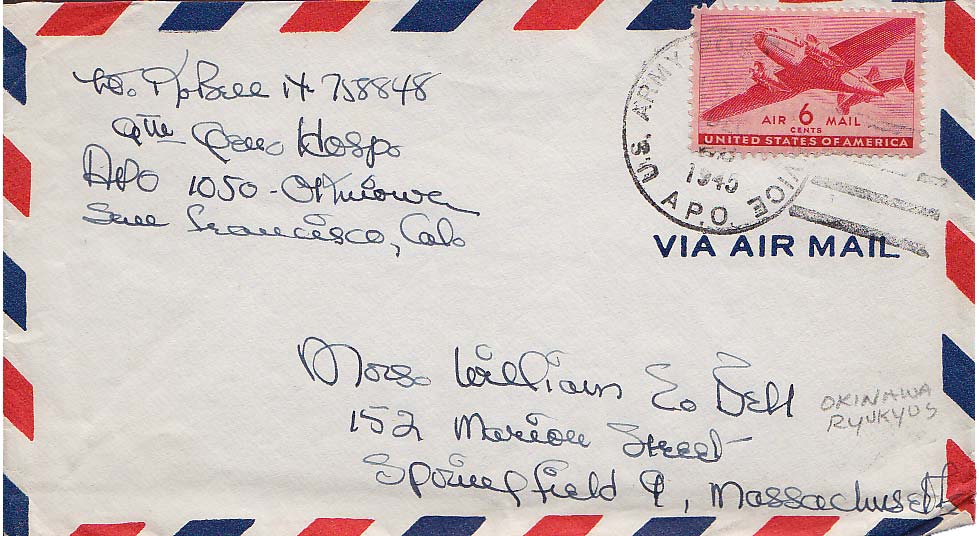 Bell N 758848
9th Gen Hosp.
APO 1050 - Okinawa
San Francisco, Cal.
U.S. ARMY
1945
A.P.O.
AIR 6 MAIL
CENTS
UNITED STATES OF AMERICA
VIA AIR MAIL
Mrs. William E. Bell
152 Marion Street
Springfield 9, Massachusetts
OKINAWA
RYUKYUS